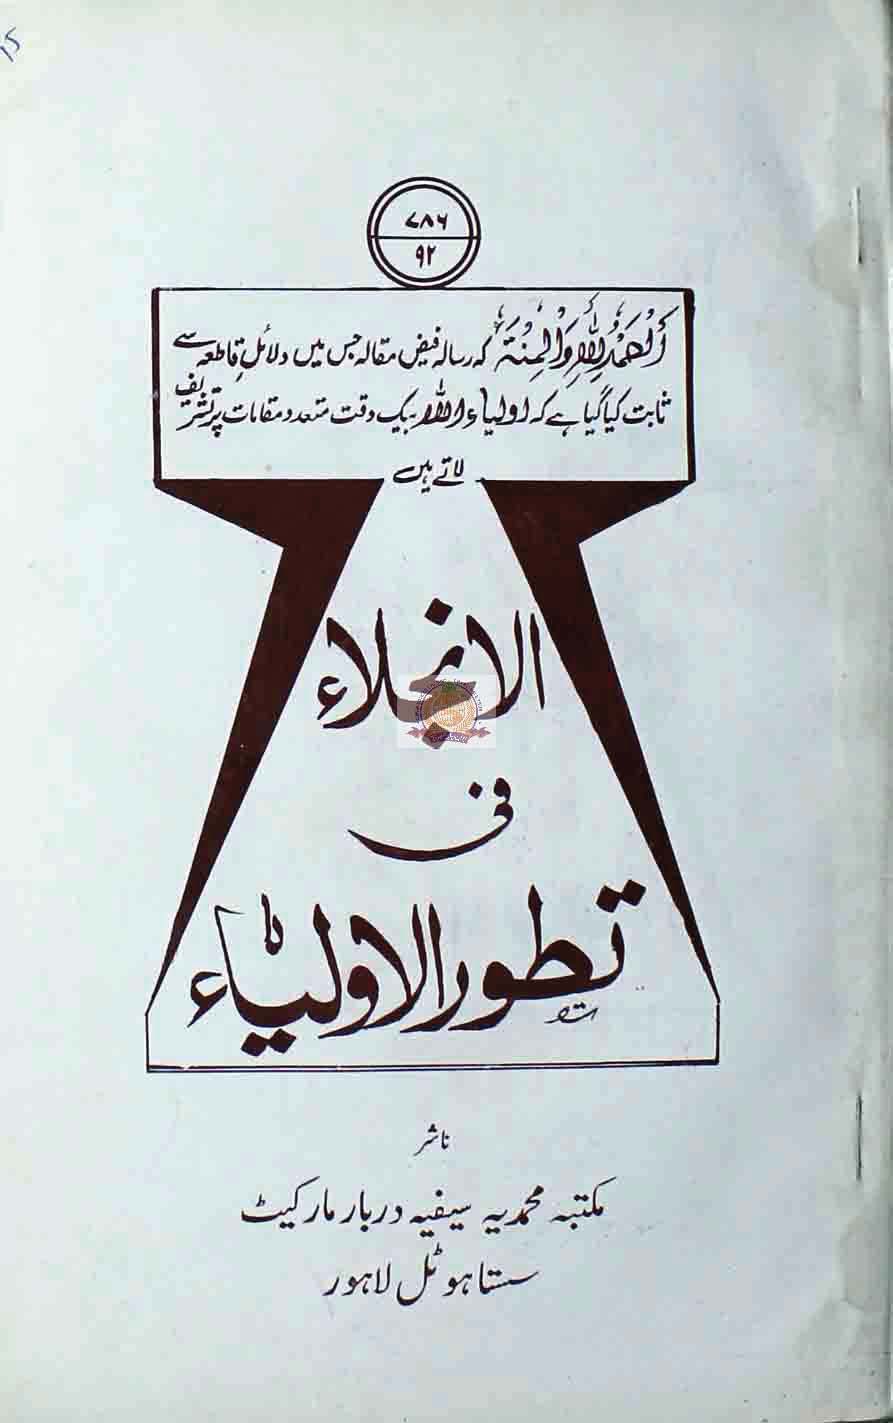 ۷۸۶
۹۲
اَلْحَمْدُ لِلّٰهِ وَالْمِنَّة کہ رسالہ فیض مقالہ جس میں دلائلِ قاطعہ سے
ثابت کیا گیا ہے کہ اولیاء اللہ بیک وقت متعدد مقامات پر تشریف
لاتے ہیں
الانجلاء
فی
تطور الاولیاء
ناشر
مکتبہ محمدیہ سیفیہ دربار مارکیٹ
سستا ہوٹل لاہور